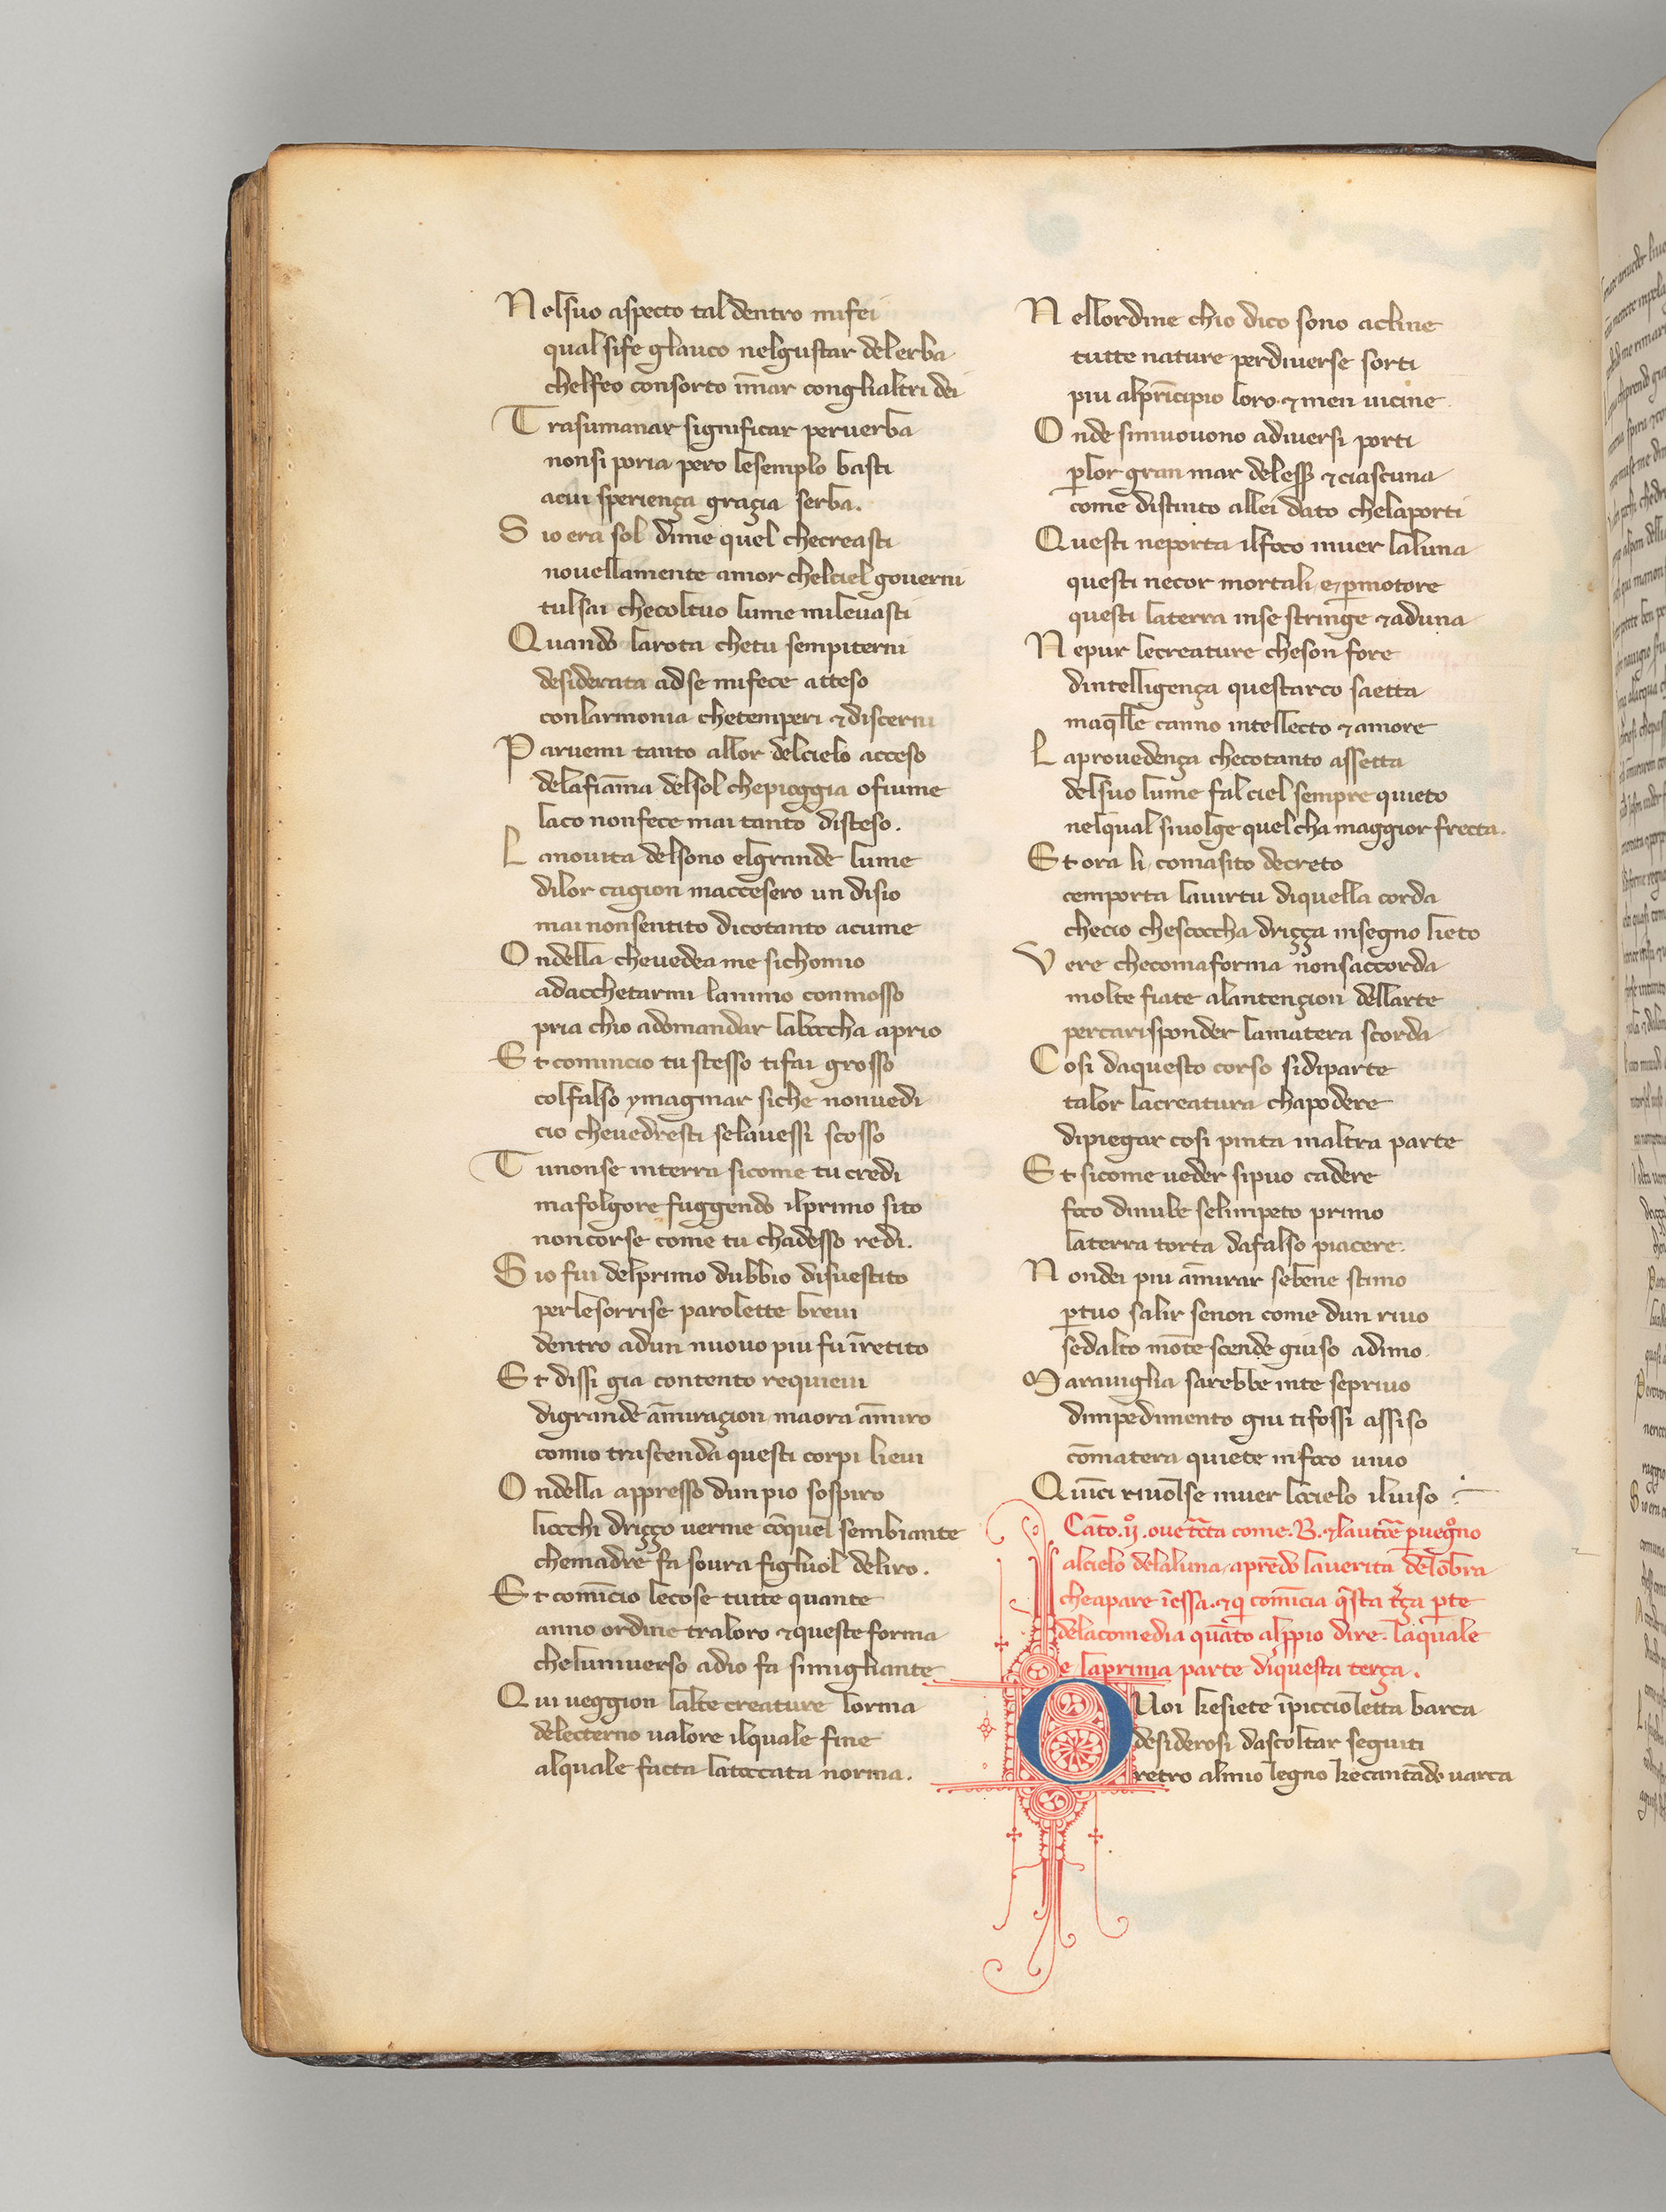 Nelsuo aspecto tal dentro mifei
qual sife glauco nelgustar delerba
chelfeo consorto ī mar conglialtri dei
Trasumanar significar peruerba
nonsi poria pero lesemplo basti
acui speriença graçia serba.
Sio era sol dime quel checreasti
nouellamente amor chelciel governi
tulsai checoltuo lume mileuasti
Quando larota chetu sempiterni
desiderata adse mifece atteso
conlarmonia chetemperi ⁊ discerni
Paruemi tanto allor delcielo acceso
delafiāma delsol chepioggia ofiume
laco nonfece mai tanto disteso.
Lanouita delsono elgrande lume
dilor cagion maccesero un disio
mai nonsentito dicotanto acume
Ondella cheuedea me sichomio
adacchetarmi lanimo conmosso
pria chio adomandar labocha aprio
Et comincio tu stesso tifai grosso
colfalso ymaginar siche nonuedi
cio cheuedresti selauessi scosso
Tunonse interra sicome tu credi
mafolgore fuggendo ilprimo sito
noncorse come tu chadesso redi.
Sio fui delprimo dubbio disuestito
perlesorrise parolette breui
dentro adun nuouo piu fu īretito
Et dissi gia contento requieui
digrande āmiraçion maora āmiro
comio trascenda questi corpi lieui
Ondella appresso dun pio sospiro
liocchi driçço uerme cōquel sembiante
chemadre fa soura figliuol deliro.
Et comīcio lecose tutte quante
anno ordine traloro ⁊ queste forma
cheluniuerso adio fa simigliante
Qui ueggion lalte creature lorma
delecterno ualore ilquale fine
alquale facta latoccata norma.
Nellordine chio dico sono acline
tutte nature perdiuerse sorti
piu alprīcipio loro ⁊ men uicine
Onde simuouono adiuersi porti
p̄lor gran mar delesſ̄ ⁊ ciascuna
come distinto allei dato chelaporti
Questi neporta ilfoco inuer laluna
questi necor mortali e p̄motore
questi laterra inse stringe ⁊ aduna
Nepur lecreature cheson fore
dintelligença questarco saetta
maq̄lle canno intellecto ⁊ amore
Laprouedença checotanto assetta
delsuo lume fal ciel sempre quieto
nelqual siuolge quel cha maggior frecta.
Et ora li comasito decreto
cemporta lauirtu diquella corda
checio chescoccha driçça insegno lieto
Vere checomaforma nonsaccorda
molte fiate alantençion dellarte
percarisponder lamatera scorda
Cosi daquesto corso sidiparte
talor lacreatura chapodere
dipiegar cosi pinta inaltra parte
Et sicome ueder sipuo cadere
foco dinube selimpeto primo
laterra torta dafalso piacere.
Nondei piu āmirar sebene stimo
p̄tuo salir senon come dun riuo
sedalto mōte scende giuso adimo.
Marauiglia sarebbe inte sepriuo
dimpedimento giu tifossi assiso
cōmatera quiete infoco uiuo
Quīci riuolse inuer locielo iluiso
Cāto .ij. oue tc̄ta come .B. ⁊ lautōre puēgōno
alcielo delaluna, aprēdo lauerita delōbra
cheapare īessa. ⁊ q̄ comīcia q̄sta t̄ça p̄te
delacomedia quāto alp̄pio dire. laquale
e laprima parte diquesta terça.
O Uoi kesiete īpiccioletta barca
desiderosi dascoltar seguiti
retro almio legno kecantādo uarca